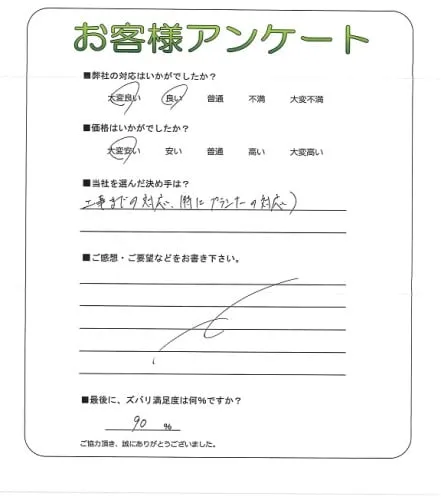 お客様アンケート
■弊社の対応はいかがでしたか?
大変良い 良い 普通 不満 大変不満
■価格はいかがでしたか?
大変安い 安い 普通 高い 大変高い
■当社を選んだ決め手は?
工事までの対応、(特にプランナーの対応)
■ご感想・ご要望などをお書き下さい。
■最後に、ズバリ満足度は何%ですか?
90 %
ご協力頂き、誠にありがとうございました。